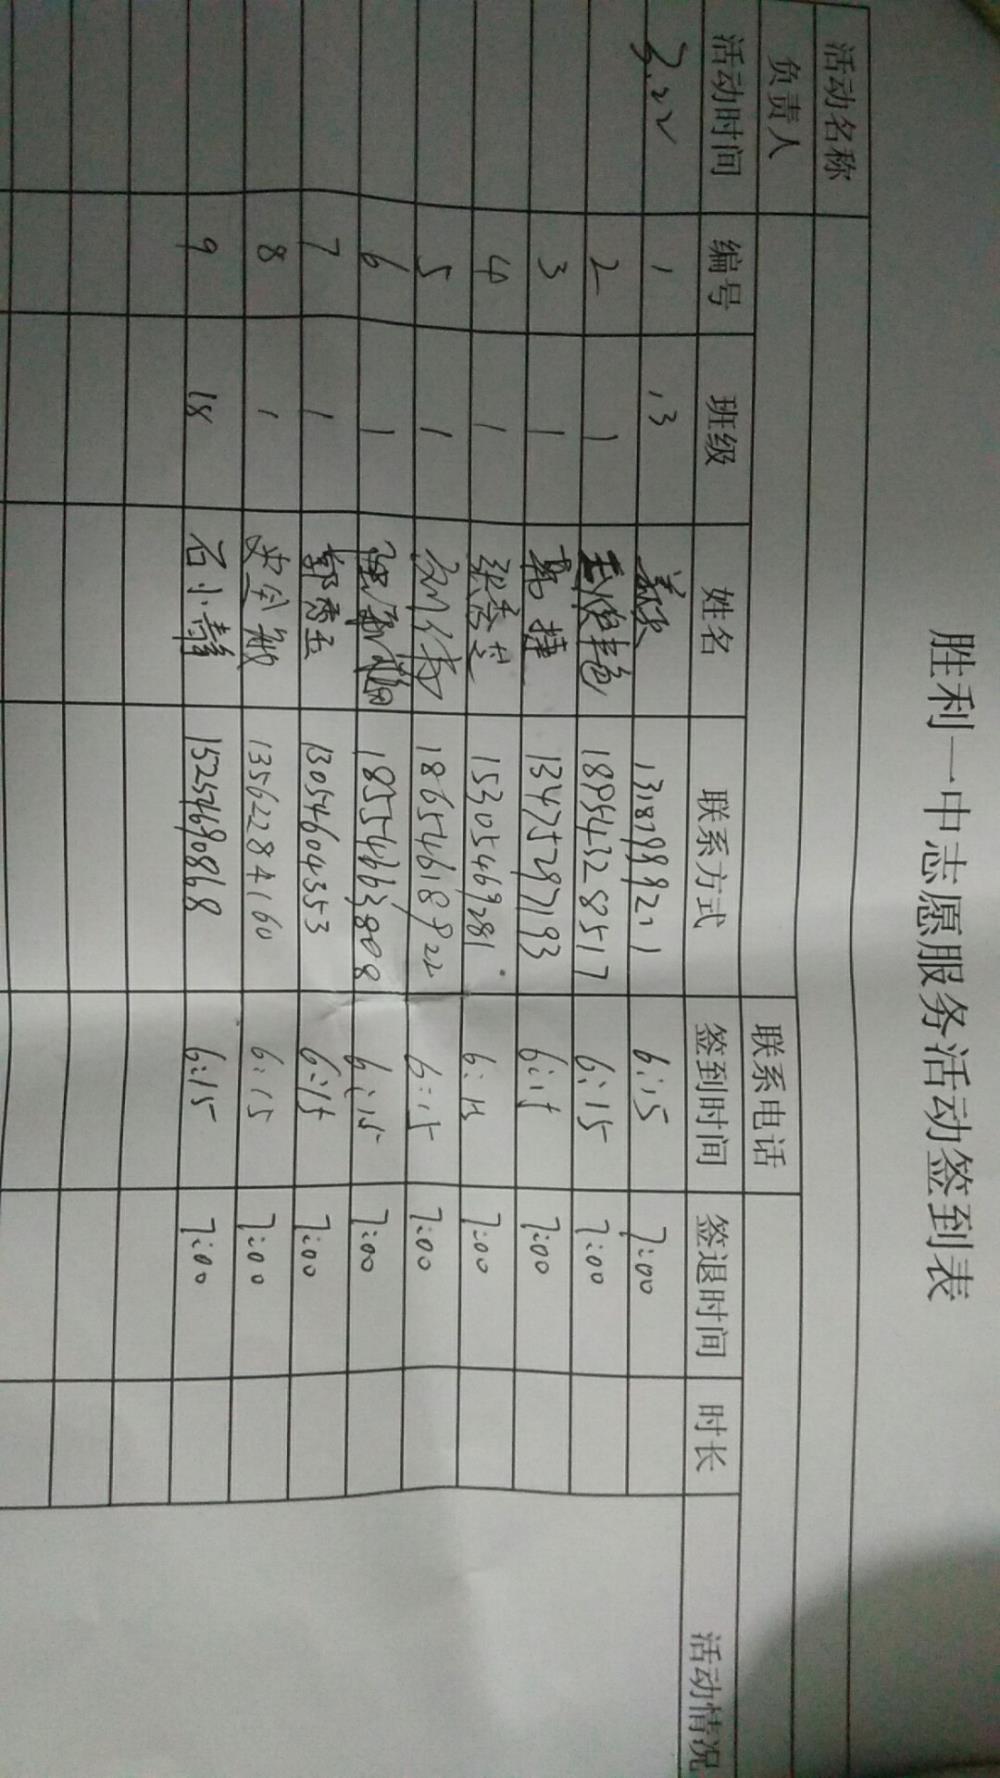 胜利一中志愿服务活动签到表
活动名称
负责人 联系电话
活动时间 编号 班级 姓名 联系方式 签到时间 签退时间 时长 活动情况
3.22 1 13 13187999211 6:15 7:00
2 1 18954328517 6:15 7:00
3 1 13475297193 6:15 7:00
4 1 张秀芝 15305469281 6:15 7:00
5 1 18654618922 6:15 7:00
6 1 18554663808 6:15 7:00
7 1 郭秀玉 13054604353 6:15 7:00
8 1 13562284160 6:15 7:00
9 18 石小静 15257690868 6:15 7:00